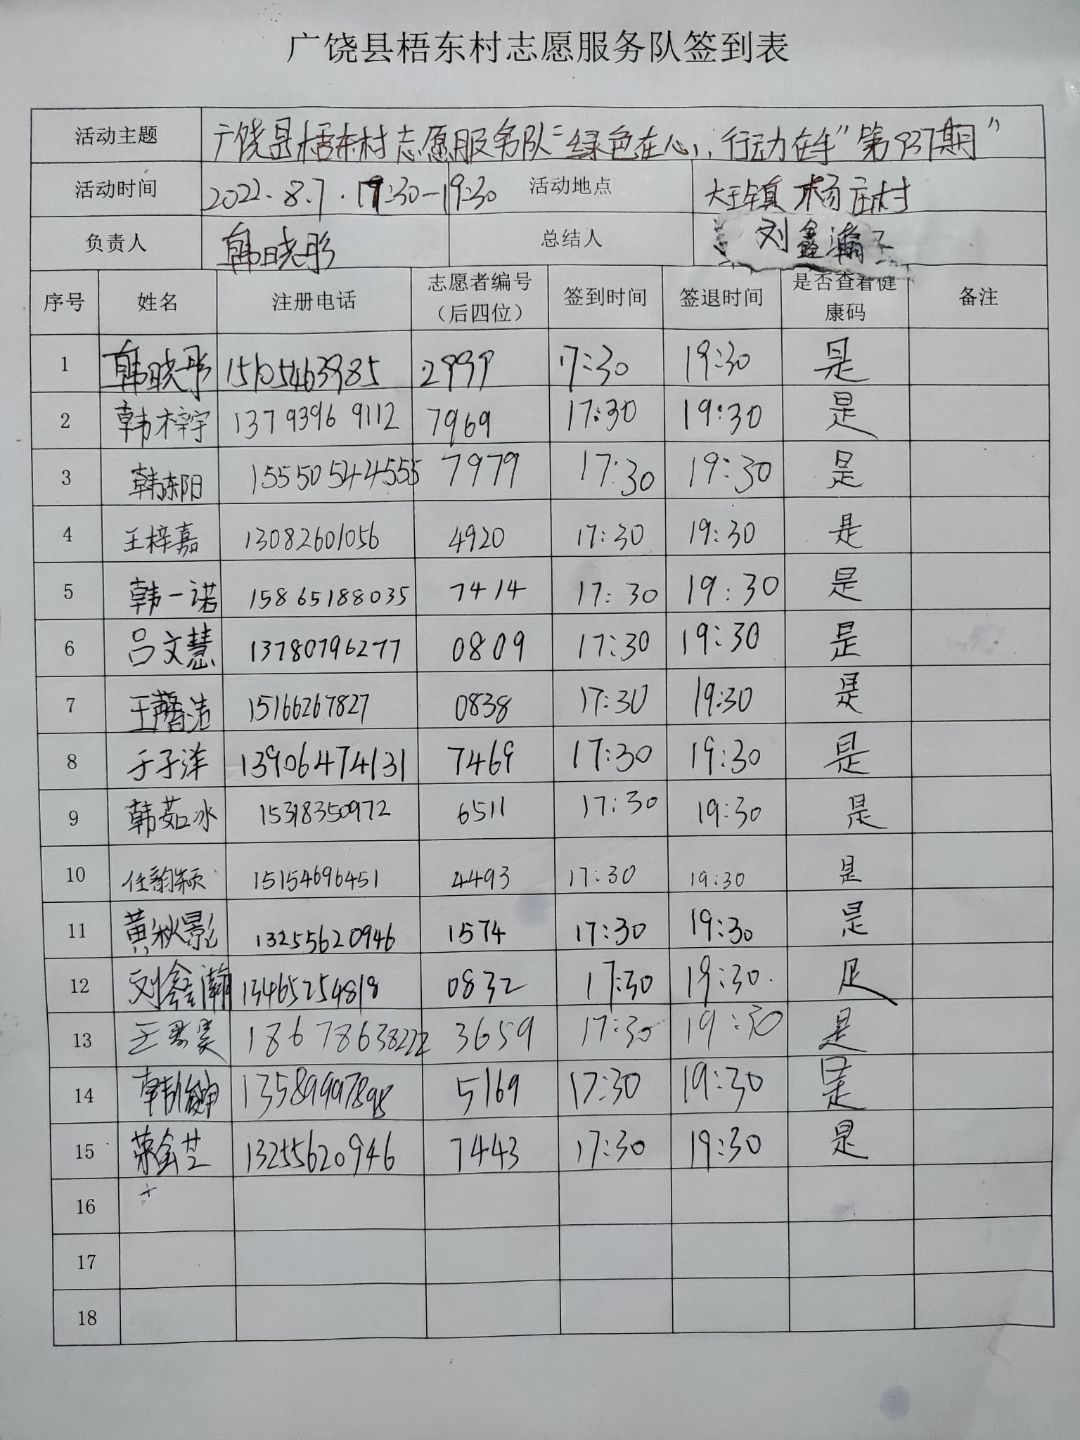 广饶县梧东村志愿服务队签到表
活动主题 广饶县梧东村志愿服务队“绿色在心,行动在手”第937期”
活动时间 2022.8.7.17:30-19:30 活动地点 大王镇杨庄村
负责人 韩晓彤 总结人 刘鑫瀚
序号 姓名 注册电话 志愿者编号（后四位） 签到时间 签退时间 是否查看健康码 备注
1 韩晓彤 15105463985 2999 17:30 19:30 是
2 韩梓宇 13793969112 7969 17:30 19:30 是
3 韩东阳 15550544555 7979 17:30 19:30 是
4 王梓嘉 13082601056 4920 17:30 19:30 是
5 韩一诺 15865188035 7414 17:30 19:30 是
6 吕文慧 13780796277 0809 17:30 19:30 是
7 王馨洁 15166267827 0838 17:30 19:30 是
8 于子洋 13906474131 7469 17:30 19:30 是
9 韩茹冰 15318350972 6511 17:30 19:30 是
10 任韵颖 15154696451 4493 17:30 19:30 是
11 黄秋影 13255620946 1574 17:30 19:30 是
12 刘鑫瀚 13465254818 0832 17:30 19:30. 是
13 18678638222 3659 17:30 19:30 是
14 13589997898 5169 17:30 19:30 是
15 荣金芝 13255620946 7443 17:30 19:30 是
16
17
18